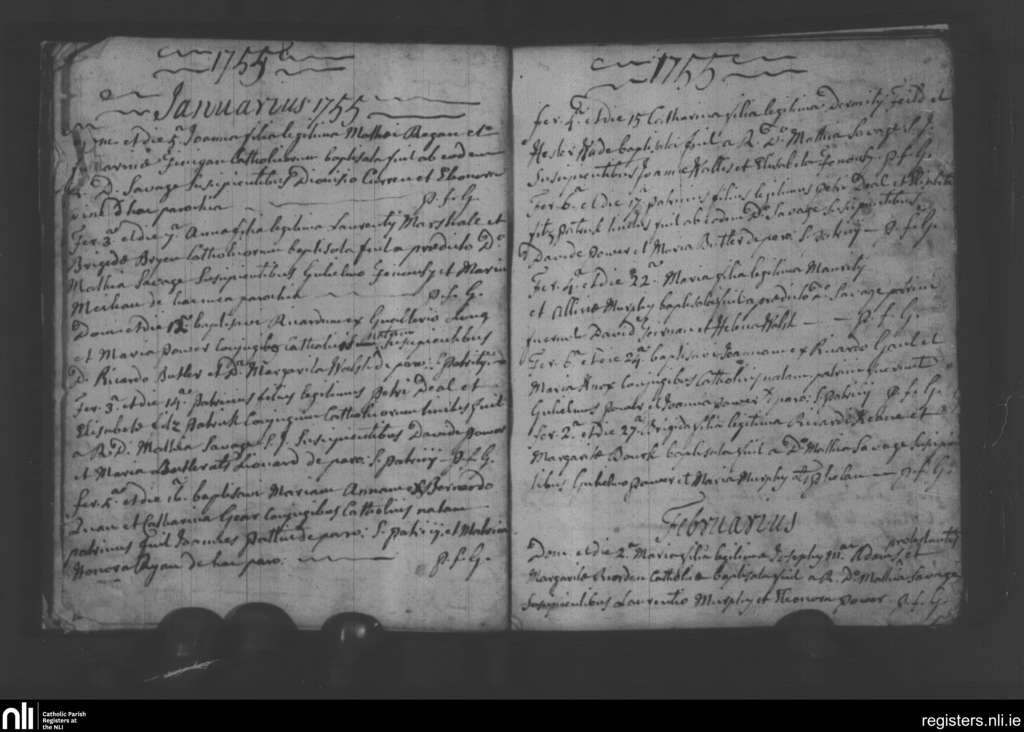 1755
Januarius 1755
Dom: et die 5ª Joanna filia legitima Mathei Ragan et
Mariæ Finigan Catholicorum baptisata fuit ab eodem
R. D. Savage Suscipientibus Dionisio Curren et Elonora
de hac parochia P. f. G.
Fer. 3ª et die 7ª Anna filia legitima Laurentij Marshall et
Brigidæ Bryen Catholicorum baptisata fuit a prædicto Dº
Mathia Savage Suscipientibus Gulielmo Connory et Maria
Meehan de hac mea parochia P. f. G.
Dom: et die 12ª baptisavi Ricardum ex Gualterio Lung
et Maria Power Conjugibus Catholicis natum Suscipientibus
D. Ricardo Butler et Dª Margarita Walsh de paro: S. Patritij
Fer. 3ª et die 14ª Patricius filius legitimus Petri Deal et
Elisabetæ Fitz Patrick Conjugum Catholicorum tinctus fuit
a R. D. Mathia Savage S. J. Suscipientibus Davide Power
et Maria Butler de paro: S. Patritij P. f. G.
Fer. 5ª et die baptisavi Mariam Annam ex Bernardo
Quan et Catharina Gear Conjugibus Catholicis natam
patrinus fuit Joannes de paro: S. Patritij, et Matrina
Honora Ryan de hac paro: P. f. G.
1755
Fer. 4ª et die 15 Catharina filia legitima Dermity Field et
Hester Wade baptisata fuit a R. Dº Mathia Savage S. J.
Suscipientibus Joanne Wallis et Elisabeta Connory P. f. G.
Fer. 6ª et die 17ª Patricius filius legitimus Petri Deal et Elisabetæ
Fitz Patrick tinctus fuit ab eodem Dº Savage Suscipientibus
Davide Power et Maria Butler de paro: S. Patritij P. f. G.
Fer. 4ª et die 22ª Maria filia legitima Mauritij
et Alliciæ Murphy baptisata fuit a prædicto Savage patrini
fuerunt David Gorman et Helena Walsh P. f. G.
Fer. 6ª et die 24ª baptisavi Joannam ex Ricardo Gaul et
Maria Knox Conjugibus Catholicis natam patrini fuerunt
Gulielmus Power et Joanna Power paro: S. Patritij P. f. G.
Fer. 2ª et die 27ª Brigida filia legitima Ricardi Kehune et
Margaritæ Bourk baptisata fuit a Dº Mathia Savage Suscipien
tibus Gulielmo Power et Maria Murphy Phelan P. f. G.
Februarius
Dom. et die 2ª Maria filia legitima Josephi Adams, protestantis et
Margaritæ Riorden Catholicæ baptisata fuit a R. Dº Mathia Savage
Suscipientibus Laurentio Murphy et Eleonora Power P. f. G.
nli
Catholic Parish
Registers at
the NLI
registers.nli.ie